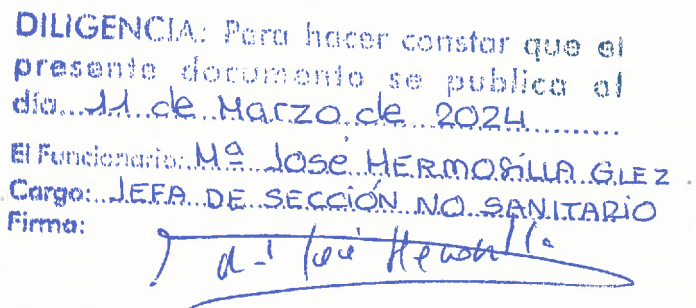 DILIGENCIA: Para hacer constar que el
presente documento se publica el
día 11 de Marzo de 2024
El Funcionario: Mª JOSÉ HERMOSILLA GLEZ
Cargo: JEFA DE SECCIÓN NO SANITARIO
Firma: